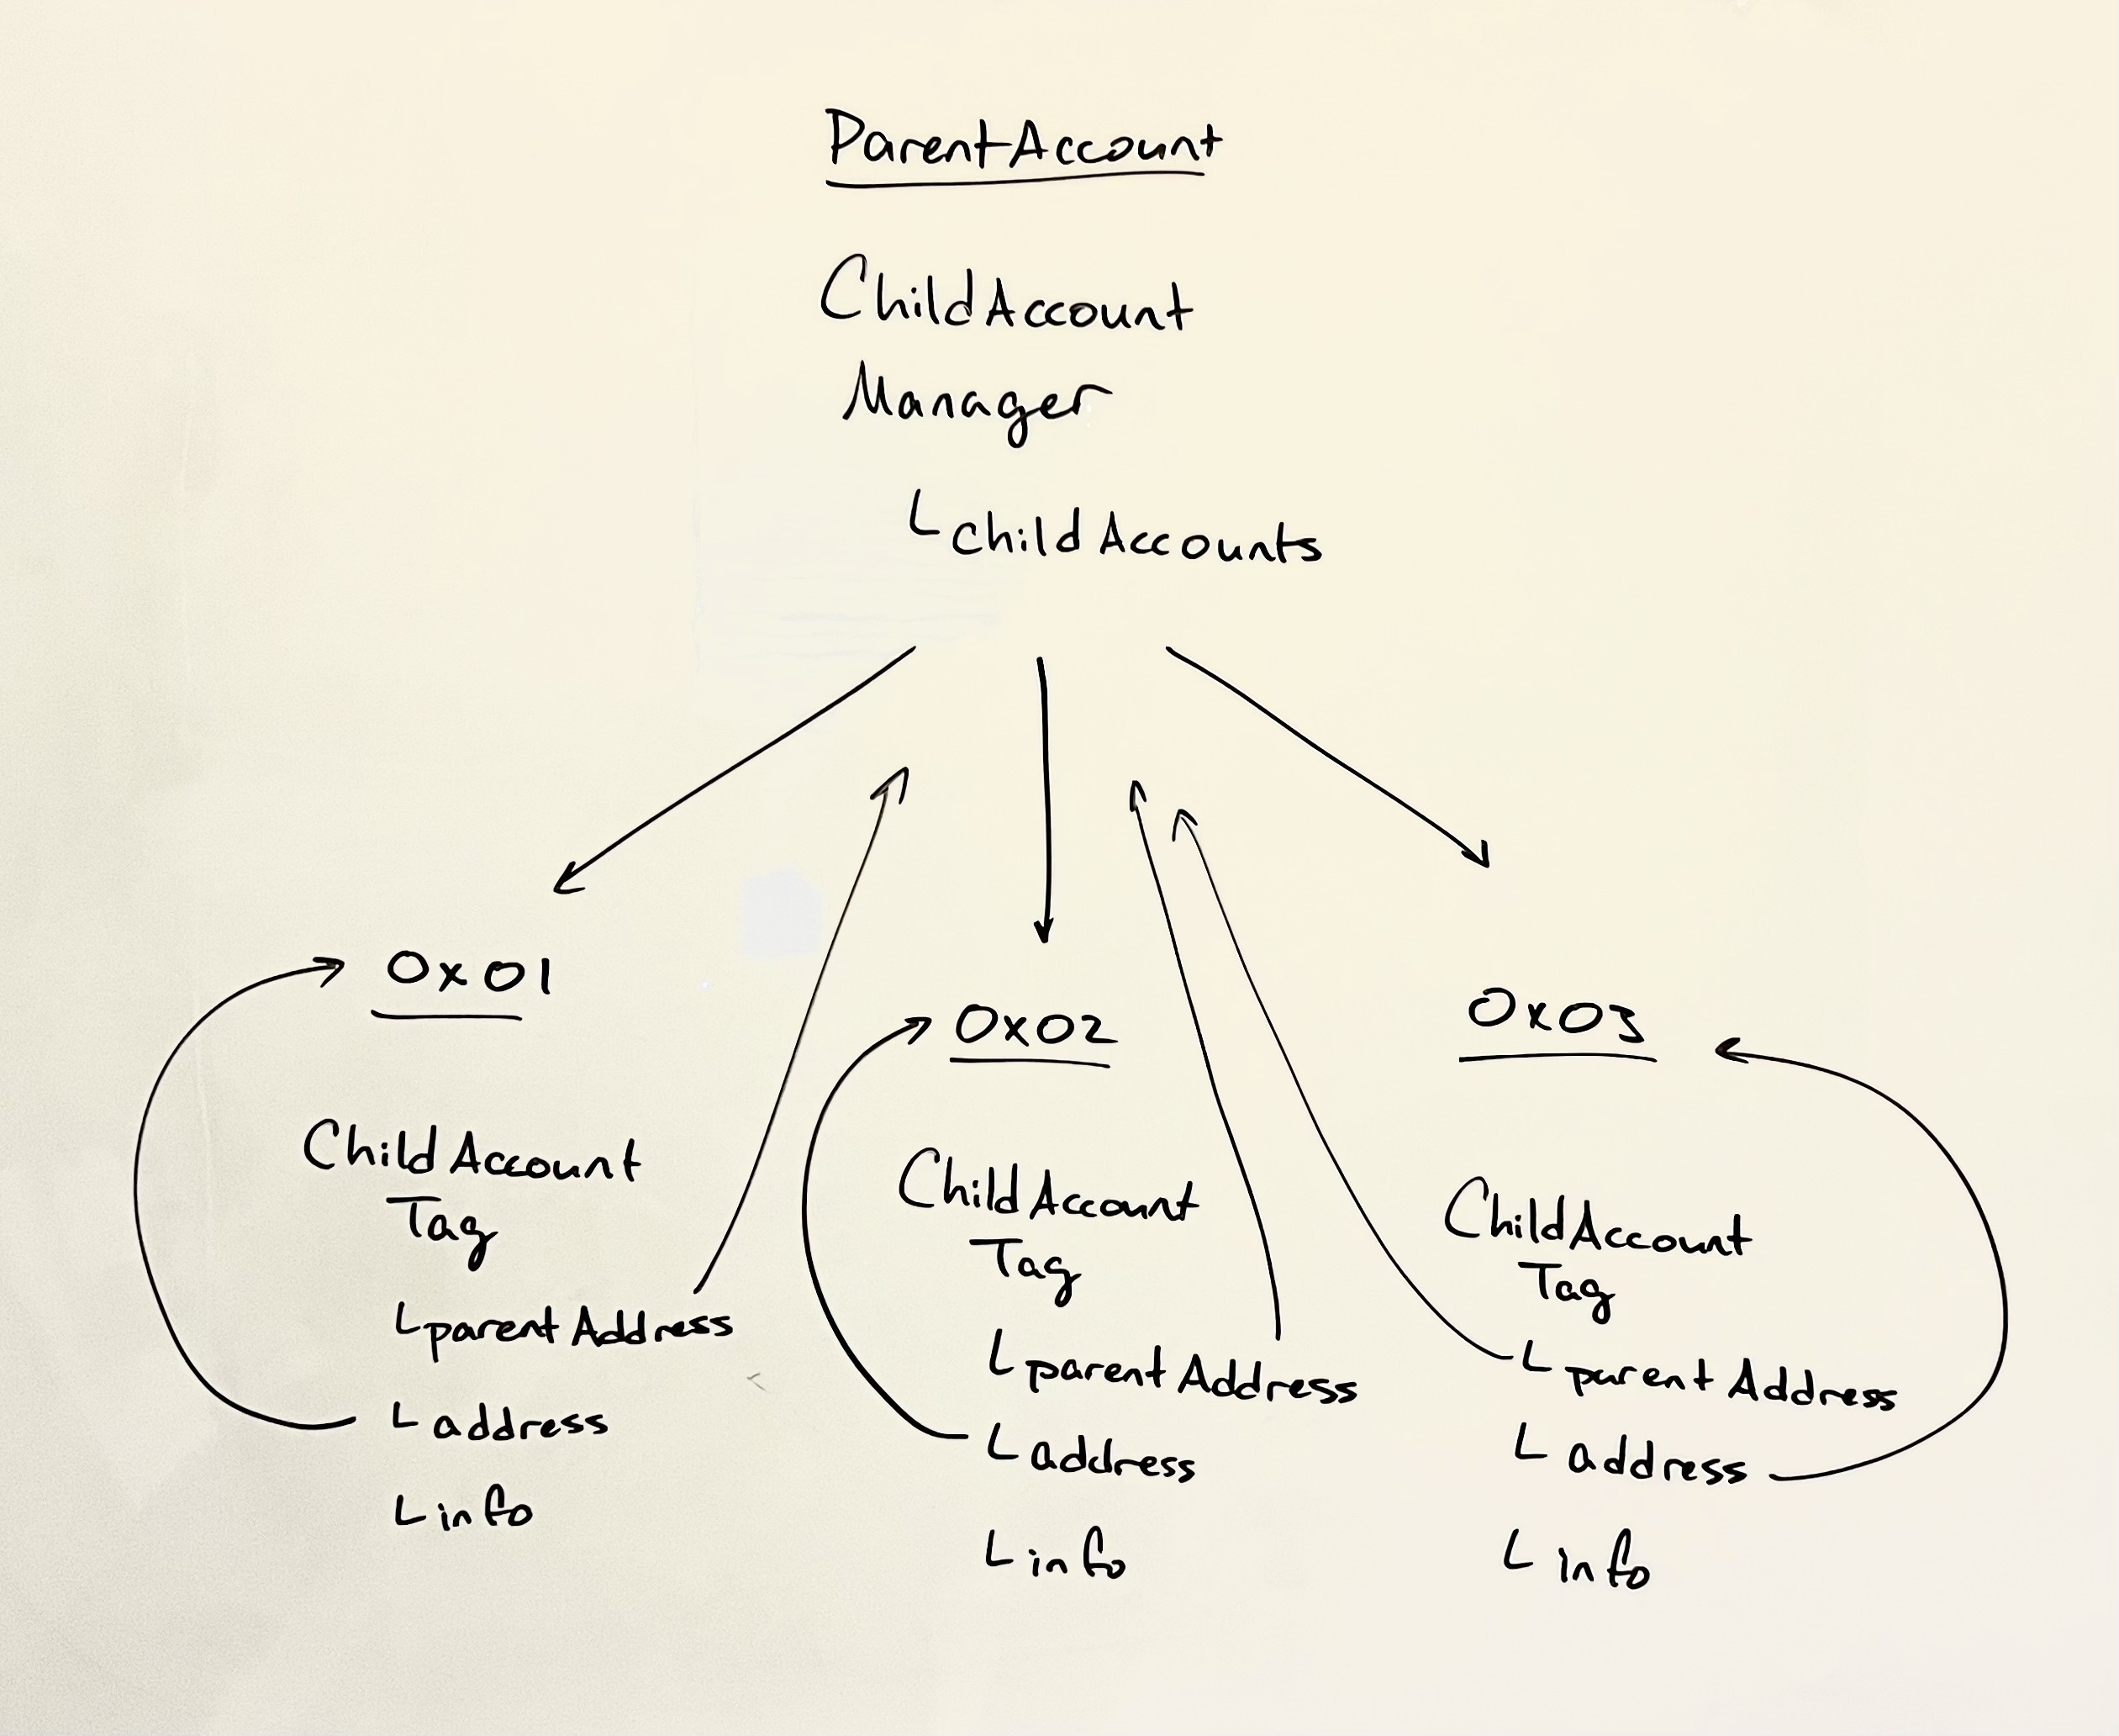 ParentAccount
ChildAccount
Manager
childAccounts
0x01
ChildAccount
Tag
parentAddress
address
info
0x02
ChildAccount
Tag
parentAddress
address
info
0x03
ChildAccount
Tag
parentAddress
address
info